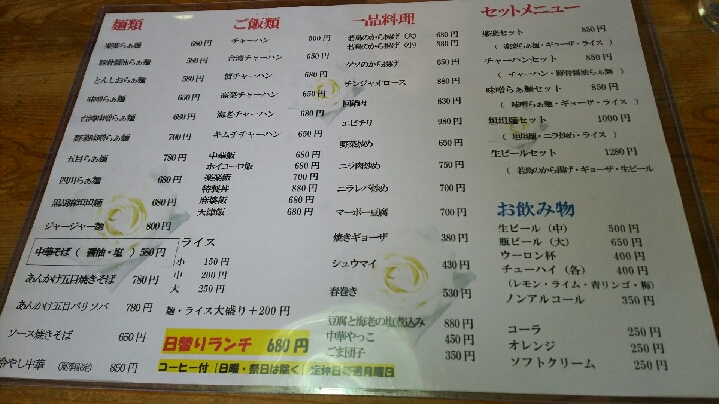 麺類
楽楽らぁ麺 680円
豚骨醤油らぁ麺 580円
とんしおらぁ麺 580円
味噌らぁ麺 650円
台湾味噌らぁ麺 680円
野菜味噌らぁ麺 700円
五目らぁ麺 780円
四川らぁ麺 680円
黒胡麻坦坦麺 680円
ジャージャー麺 800円
中華そば(醤油・塩)580円
あんかけ五目焼きそば 780円
あんかけ五目バリソバ 780円
ソース焼きそば 650円
冷やし中華 (夏季限定) 850円
ご飯類
チャーハン 500円
台湾チャーハン 650円
蟹チャーハン 680円
高菜チャーハン 650円
海老チャーハン 680円
キムチチャーハン 650円
中華飯 680円
ホイコーロ飯 700円
楽楽飯 700円
特製丼 880円
麻婆飯 680円
天津飯 680円
ライス
小 150円
中 200円
大 250円
麺・ライス大盛り+200円
日替りランチ 680円
コーヒー付(日曜・祭日は除く)定休日毎週月曜日
一品料理
若鳥のから揚げ(大) 680円
若鳥のから揚げ(小) 450円
ゲソのから揚げ 650円
チンジャオロース 880円
回鍋肉 830円
エビチリ 980円
野菜炒め 650円
ニラ肉炒め 750円
ニラレバ炒め 700円
マーボー豆腐 700円
焼きギョーザ 380円
シュウマイ 430円
春巻き 530円
豆腐と海老の塩煮込み 880円
中華やっこ 450円
ごま団子 350円
セットメニュー
楽楽セット 850円
(楽楽らぁ麺・ギョーザ・ライス)
チャーハンセット 850円
(チャーハン・豚骨醤油らぁ麺)
味噌らぁ麺セット 850円
(味噌らぁ麺・ギョーザ・ライス)
坦坦麺セット 1000円
(坦坦麺・ニラ炒め・ライス)
生ビールセット 1280円
(若鳥のから揚げ・ギョーザ・生ビール
お飲み物
生ビール(中) 500円
瓶ビール(大) 650円
ウーロン杯 400円
チューハイ(各) 400円
(レモン・ライム・青リンゴ・梅)
ノンアルコール 350円
コーラ 250円
オレンジ 250円
ソフトクリーム 250円